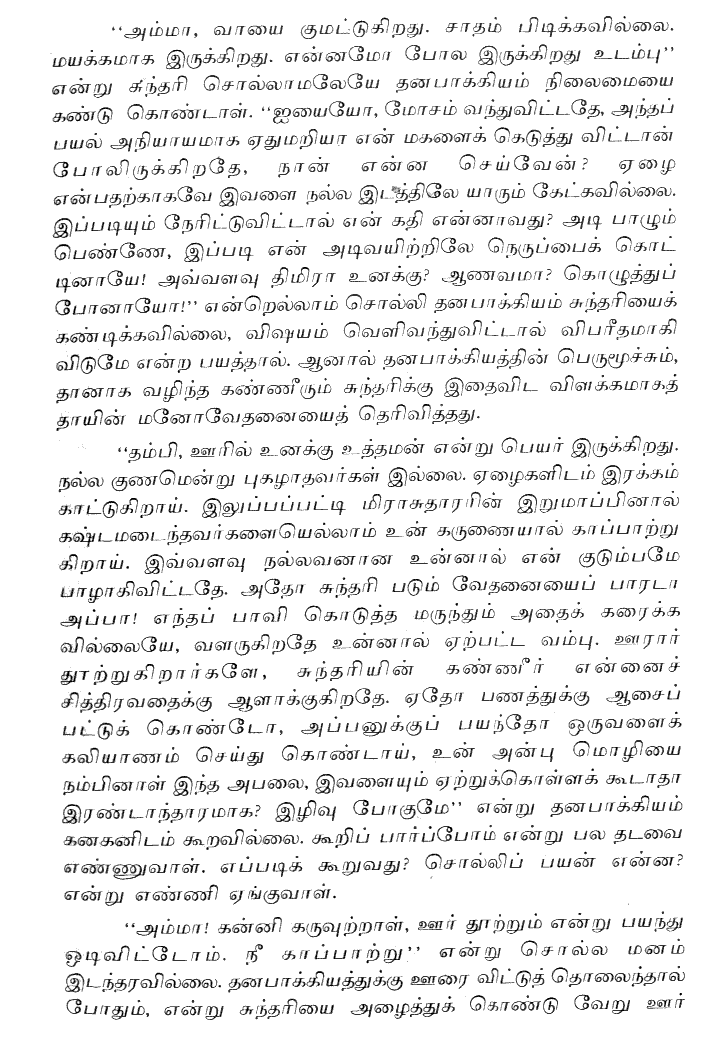 ‘‘அம்மா, வாயை குமட்டுகிறது. சாதம் பிடிக்கவில்லை.
மயக்கமாக இருக்கிறது. என்னமோ போல இருக்கிறது உடம்பு’’
என்று சுந்தரி சொல்லாமலேயே தனபாக்கியம் நிலைமையை
கண்டு கொண்டாள். ‘‘ஐயையோ, மோசம் வந்துவிட்டதே, அந்தப்
பயல் அநியாயமாக ஏதுமறியா என் மகளைக் கெடுத்து விட்டான்
போலிருக்கிறதே, நான் என்ன செய்வேன்? ஏழை
என்பதற்காகவே இவளை நல்ல இடத்திலே யாரும் கேட்கவில்லை.
இப்படியும் நேரிட்டுவிட்டால் என் கதி என்னாவது? அடி பாழும்
பெண்ணே, இப்படி என் அடிவயிற்றிலே நெருப்பைக் கொட்
டினாயே! அவ்வளவு திமிரா உனக்கு? ஆணவமா? கொழுத்துப்
போனாயோ!’’ என்றெல்லாம் சொல்லி தனபாக்கியம் சுந்தரியைக்
கண்டிக்கவில்லை, விஷயம் வெளிவந்துவிட்டால் விபரீதமாகி
விடுமே என்ற பயத்தால். ஆனால் தனபாக்கியத்தின் பெருமூச்சும்,
தானாக வழிந்த கண்ணீரும் சுந்தரிக்கு இதைவிட விளக்கமாகத்
தாயின் மனோவேதனையைத் தெரிவித்தது.
‘‘தம்பி, ஊரில் உனக்கு உத்தமன் என்று பெயர் இருக்கிறது.
நல்ல குணமென்று புகழாதவர்கள் இல்லை. ஏழைகளிடம் இரக்கம்
காட்டுகிறாய். இலுப்பப்பட்டி மிராசுதாரரின் இறுமாப்பினால்
கஷ்டமடைந்தவர்களையெல்லாம் உன் கருணையால் காப்பாற்று
கிறாய். இவ்வளவு நல்லவனான உன்னால் என் குடும்பமே
பாழாகிவிட்டதே. அதோ சுந்தரி படும் வேதனையைப் பாரடா
அப்பா! எந்தப் பாவி கொடுத்த மருந்தும் அதைக் கரைக்க
வில்லையே, வளருகிறதே உன்னால் ஏற்பட்ட வம்பு. ஊரார்
தூற்றுகிறார்களே, சுந்தரியின் கண்ணீர் என்னைச்
சித்திரவதைக்கு ஆளாக்குகிறதே. ஏதோ பணத்துக்கு ஆசைப்
பட்டுக் கொண்டோ, அப்பனுக்குப் பயந்தோ ஒருவளைக்
கலியாணம் செய்து கொண்டாய், உன் அன்பு மொழியை
நம்பினாள் இந்த அபலை, இவளையும் ஏற்றுக்கொள்ளக் கூடாதா
இரண்டாந்தாரமாக? இழிவு போகுமே’’ என்று தனபாக்கியம்
கனகனிடம் கூறவில்லை. கூறிப் பார்ப்போம் என்று பல தடவை
எண்ணுவாள். எப்படிக் கூறுவது? சொல்லிப் பயன் என்ன?
என்று எண்ணி ஏங்குவாள்.
‘‘அம்மா! கன்னி கருவுற்றாள், ஊர் தூற்றும் என்று பயந்து
ஒடிவிட்டோம். நீ காப்பாற்று’’ என்று சொல்ல மனம்
இடந்தரவில்லை. தனபாக்கியத்துக்கு ஊரை விட்டுத் தொலைந்தால்
போதும், என்று சுந்தரியை அழைத்துக் கொண்டு வேறு ஊர்